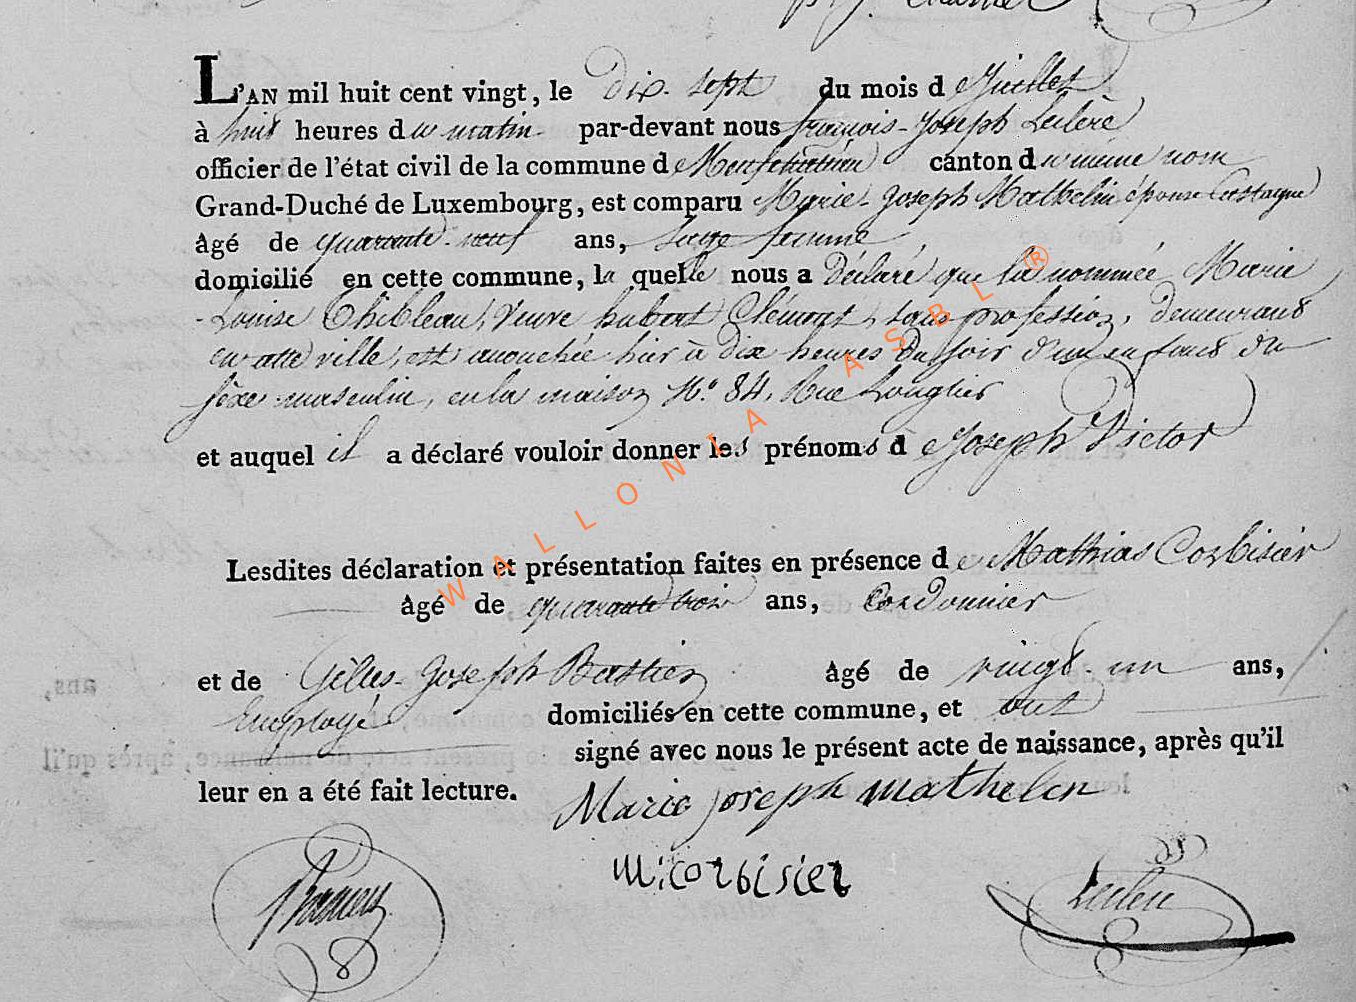 L'AN mil huit cent vingt, le dix-sept du mois de Juillet
à huit heures du matin par-devant nous françois-Joseph Leclère
officier de l'état civil de la commune de Neufchateau canton du même nom
Grand-Duché de Luxembourg, est comparu Marie-Joseph Mathelin épouse Castagne
âgé de quarante-neuf ans, sage femme
domicilié en cette commune, laquelle nous a déclaré que la nommée Marie
-Louise Thibleau, veuve hubert Clément, sans profession, demeurant
en cette ville, est accouchée hier à dix heures du soir d'un enfant du
sèxe masculin, en la maison N.° 84, Rue Longlier
et auquel il a déclaré vouloir donner les prénoms de Joseph Victor
Lesdites déclaration et présentation faites en présence de Mathias Corbisier
âgé de quarante trois ans, Cordonnier
et de Gilles-Joseph Bastien âgé de vingt-un ans,
Employé domiciliés en cette commune, et ont
signé avec nous le présent acte de naissance, après qu'il
leur en a été fait lecture. Marie joseph mathelin
micorbisier
Leclere
WALLONIA ASBL ®